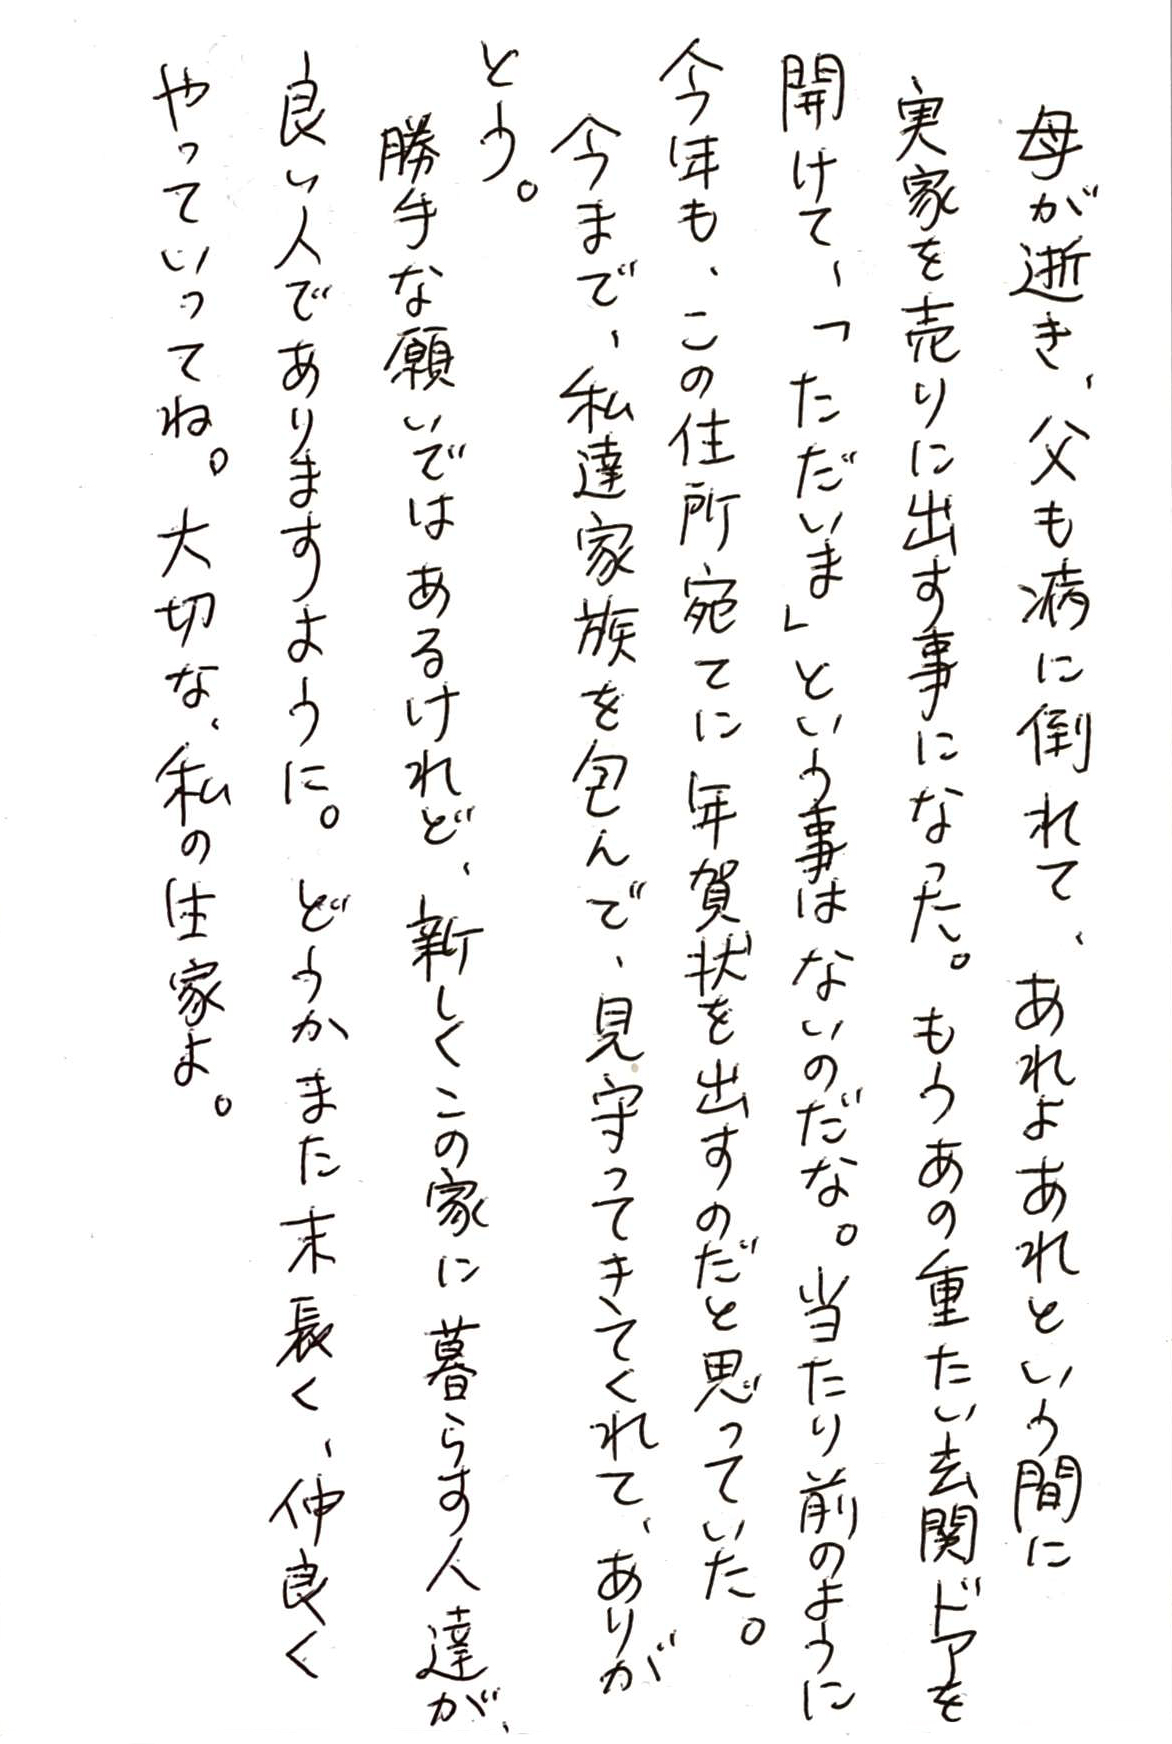 母が逝き、父も病に倒れて、あれよあれという間に
実家を売りに出す事になった。もうあの重たい玄関ドアを
開けて、「ただいま」という事はないのだな。当たり前のように
今年も、この住所宛てに年賀状を出すのだと思っていた。
今まで、私達家族を包んで、見守ってきてくれて、ありが
とう。
勝手な願いではあるけれど、新しくこの家に暮らす人達が、
良い人でありますように。どうかまた末長く、仲良く
やっていってね。大切な、私の生家よ。